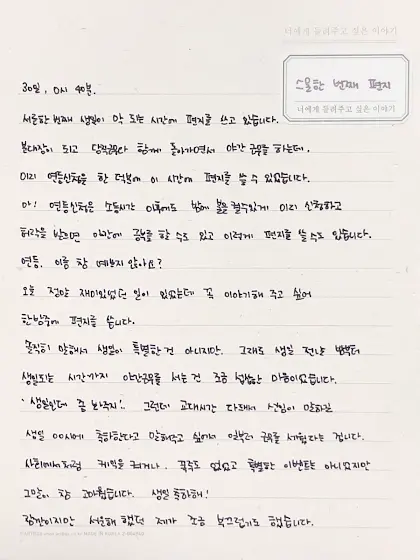 너에게 들려주고 싶은 이야기
스물한 번째 편지
너에게 들려주고 싶은 이야기
30일, 0시 40분.
서른한번째 생일이 막 되는 시간에 편지를 쓰고 있습니다.
분대장이 되고 당직근무와 함께 돌아가면서 야간 근무를 하는데,
미리 연등신청을 한 덕분에 이 시간에 편지를 쓸 수 있었습니다.
아! 연등신청은 소등시간 이후에도 밤에 불을 켤수있게 미리 신청하고
허락을 받으면 야간에 공부를 할 수도 있고 이렇게 편지를 쓸 수도 있습니다.
연등, 이름 참 예쁘지 않아요?
오늘 정말 재미있었던 일이 있었는데 꼭 이야기해 주고 싶어
한밤중에 편지를 씁니다.
솔직히 말해서 생일이 특별한건 아니지만, 그래도 생일 전날 밤부터
생일되는 시간까지 야간근무를 서는건 조금 섭섭한 마음이었습니다.
'생일인데 좀 봐주지!' 그런데 교대시간 다 돼서 선임이 말하길
생일 00시에 축하한다고 말해주고 싶어서 일부러 근무를 세웠다는 겁니다.
사회에서처럼 케익을 켜거나, 폭죽도 없었고 특별한 이벤트는 아니었지만
그말이 참 고마웠습니다. 생일 축하해!
잠깐이지만 서운해 했던 제가 조금 부끄럽기도 했습니다.